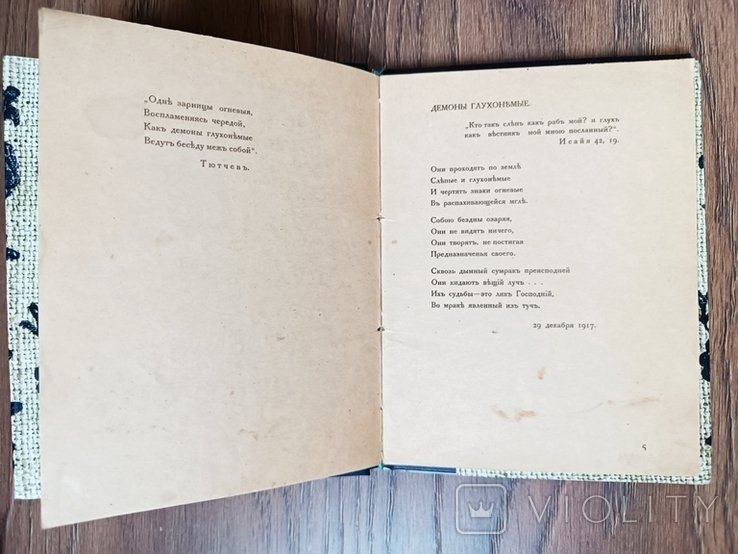 „Однѣ зарницы огневыя,
Воспламеняясь чередой,
Какъ демоны глухонѣмые
Ведутъ бесѣду межъ собой“.
Тютчевъ.
ДЕМОНЫ ГЛУХОНѢМЫЕ.
„Кто такъ слѣпъ какъ рабъ мой? и глухъ
какъ вѣстникъ мой мною посланный?“.
Исайя 42, 19.
Они проходятъ по землѣ
Слѣпые и глухонѣмые
И чертятъ знаки огневые
Въ распахивающейся мглѣ.
Собою бездны озаряя,
Они не видятъ ничего,
Они творятъ, не постигая
Предназначенья своего.
Сквозь дымный сумракъ преисподней
Они кидаютъ вѣщій лучъ . . .
Ихъ судьбы—это ликъ Господній,
Во мракѣ явленный изъ тучъ.
29 декабря 1917.
5
VIOLITY